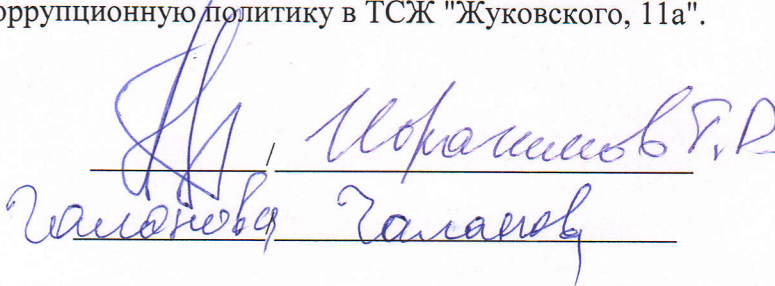 оррупционную политику в ТСЖ "Жуковского, 11а".
/ Ибрагимов Т.Р.
Галанова / Галанов